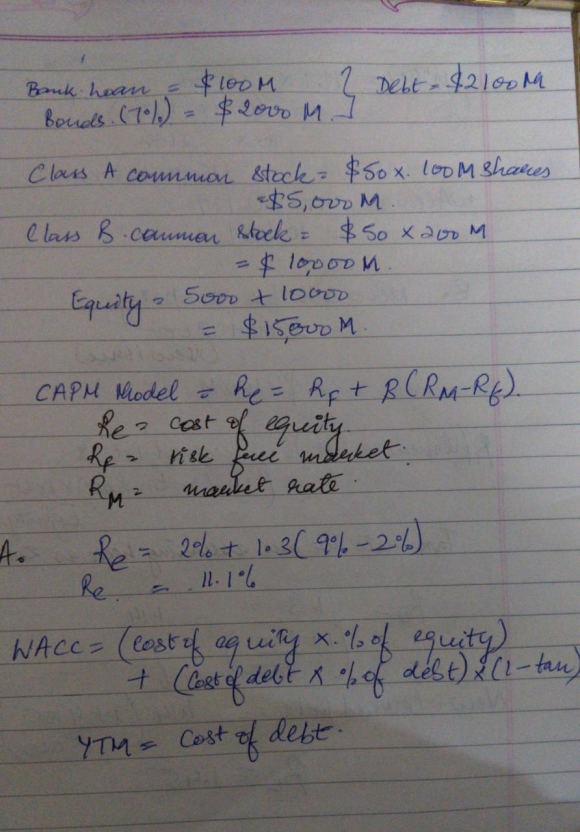 Bank loan = $100M } Debt = $2100M
Bonds (7%) = $2000 M.
Class A common stock = $50 x 100M shares
= $5,000 M.
Class B. common stock = $50 x 200 M
= $10,000 M.
Equity = 5000 + 10000
= $15,000 M.
CAPM Model = Re = RF + B (RM-Rf).
Re = cost of equity.
RF = risk free market.
RM = market rate.
A. Re = 2% + 1.3( 9% - 2%)
Re. = 11.1%
WACC = (cost of equity x % of equity)
+ (cost of debt x % of debt) x (1 - tax)
YTM = cost of debt.